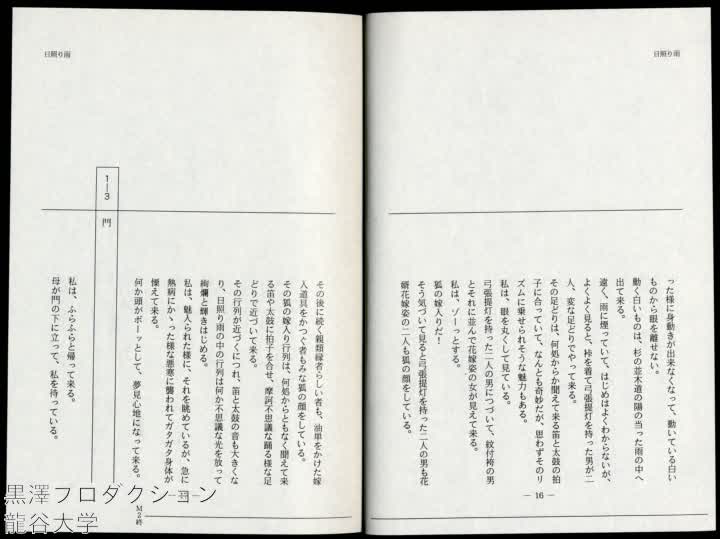 日照り雨
った様に身動きが出来なくなって、動いている白い
ものから眼を離せない。
動く白いものは、杉の並木道の陽の当った雨の中へ
出て来る。
遠く、雨に煙っていて、はじめはよくわからないが、
よくよく見ると、裃を着て弓張提灯を持った男が二
人、変な足どりでやって来る。
その足どりは、何処からか聞えて来る笛と太鼓の拍
子に合っていて、なんとも奇妙だが、思わずそのリ
ズムに乗せられそうな魅力もある。
私は、眼を丸くして見ている。
弓張提灯を持った二人の男につづいて、紋付袴の男
とそれに並んで花嫁姿の女が見えて来る。
私は、ゾーッとする。
狐の嫁入りだ!
そう気づいて見ると弓張提灯を持った二人の男も花
婿花嫁姿の二人も狐の顔をしている。
— 16 —
日照り雨
その後に続く親類縁者らしい者も、油単をかけた嫁
入道具をかつぐ者もみな狐の顔をしている。
その狐の嫁入り行列は、何処からともなく聞えて来
る笛や太鼓に拍子を合せ、摩訶不思議な踊る様な足
どりで近づいて来る。
その行列が近づくにつれ、笛と太鼓の音も大きくな
り、日照り雨の中の行列は何か不思議な光を放って
絢爛と輝きはじめる。
私は、魅入られた様に、それを眺めているが、急に
熱病にかゝった様な悪寒に襲われてガタガタ身体が
慄えて来る。
何か頭がボーッとして、夢見心地になって来る。
M2終
1—3 門
私は、ふらふらと帰って来る。
母が門の下に立って、私を待っている。
黒澤プロダクション
龍谷大学